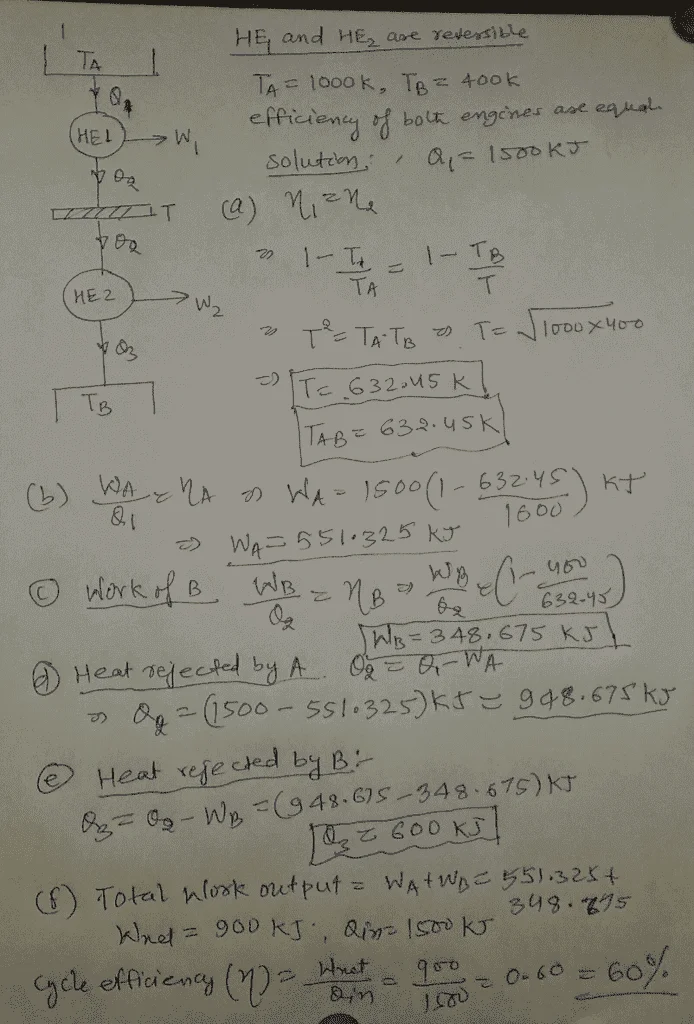 HE1 and HE2 are reversible
TA
TA = 1000K, TB = 400K
Q1
efficiency of both engines are equal
HE1 → W1
Solution: Q1 = 1500 KJ
Q2
T
(a) η1 = η2
Q2
⇒ 1 - T/TA = 1 - TB/T
HE2 → W2
⇒ T² = TA·TB ⇒ T = √1000×400
Q3
⇒ T = 632.45 K
TB
TAB = 632.45K
(b) WA/Q1 = ηA ⇒ WA = 1500(1 - 632.45/1000) KJ
⇒ WA = 551.325 KJ
(c) Work of B WB/Q2 = ηB ⇒ WB/Q2 = (1 - 400/632.45)
WB = 348.675 KJ
(d) Heat rejected by A. Q2 = Q1 - WA
⇒ Q2 = (1500 - 551.325)KJ = 948.675 KJ
(e) Heat rejected by B:-
Q3 = Q2 - WB = (948.675 - 348.675) KJ
Q3 = 600 KJ
(f) Total Work output = WA + WB = 551.325 +
348.675
Wnet = 900 KJ, Qin = 1500 KJ
Cycle efficiency (η) = Wnet/Qin = 900/1500 = 0.60 = 60%